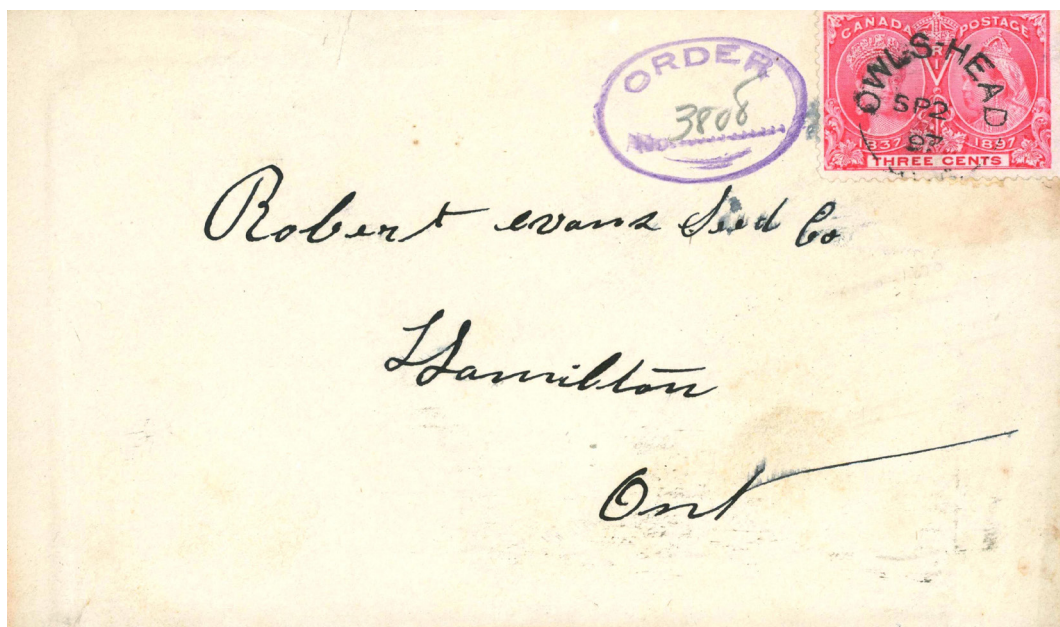 ORDER
No. 3808
CANADA POSTAGE
OWLS-HEAD
SP 2
97
1837 1897
THREE CENTS
Robert evans Seed Co
Hamilton
Ont